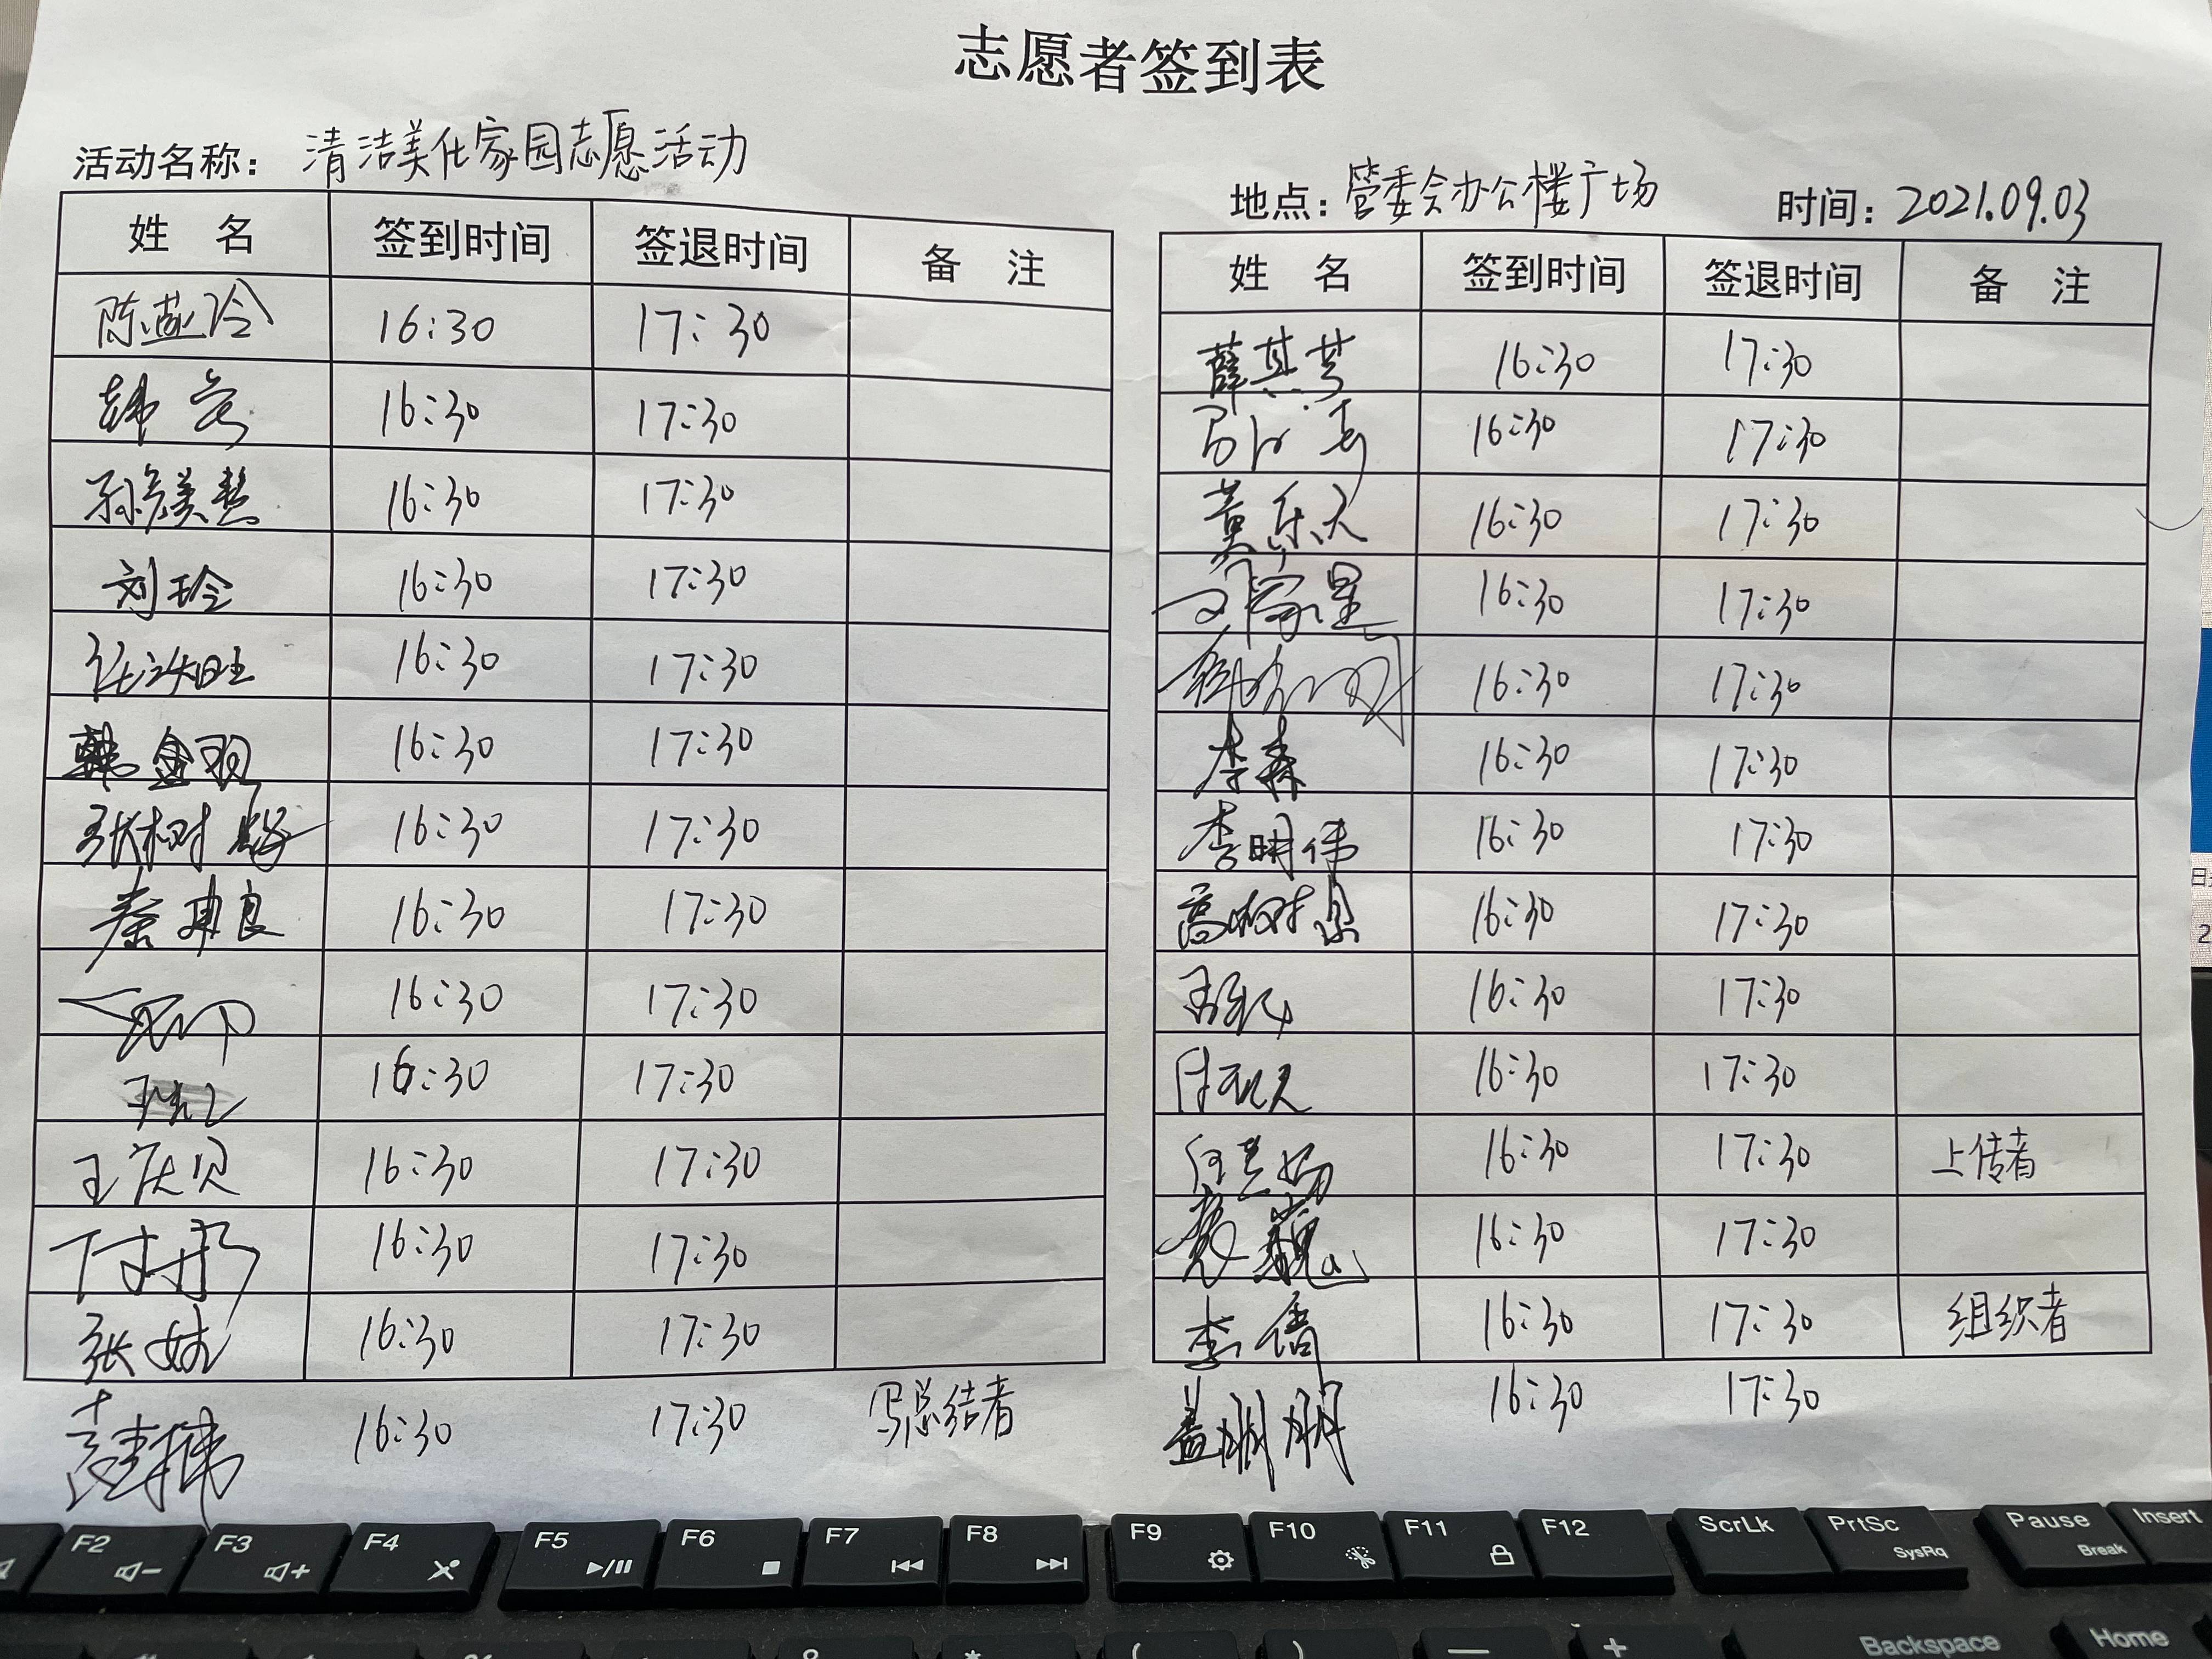 志愿者签到表
活动名称： 清洁美化家园志愿活动
地点：管委会办公楼广场 时间：2021.09.03
姓 名 签到时间 签退时间 备 注
陈燕冷 16:30 17:30
韩 16:30 17:30
孙美慧 16:30 17:30
刘玲 16:30 17:30
任 16:30 17:30
韩金羽 16:30 17:30
张树 16:30 17:30
秦 良 16:30 17:30
16:30 17:30
16:30 17:30
王庆贝 16:30 17:30
16:30 17:30
张 16:30 17:30
16:30 17:30 写总结者
姓 名 签到时间 签退时间 备 注
薛其芳 16:30 17:30
16:30 17:30
黄乐天 16:30 17:30
家星 16:30 17:30
16:30 17:30
李森 16:30 17:30
李明伟 16:30 17:30
高树 16:30 17:30
16:30 17:30
16:30 17:30
16:30 17:30 上传者
袁巍 16:30 17:30
李倩 16:30 17:30 组织者
盖明明 16:30 17:30
F2
F3
F4
F5
F6
F7
F8
F9
F10
F11
F12
ScrLk
PrtSc
SysRq
Pause
Break
Insert
Backspace
Home